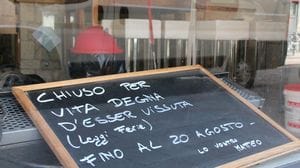 CHIUSO PER
VITA DEGNA
D'ESSER VISSUTA
(Leggi Ferie)
FINO AL 20 AGOSTO -
LO VOSTRO
MATTEO